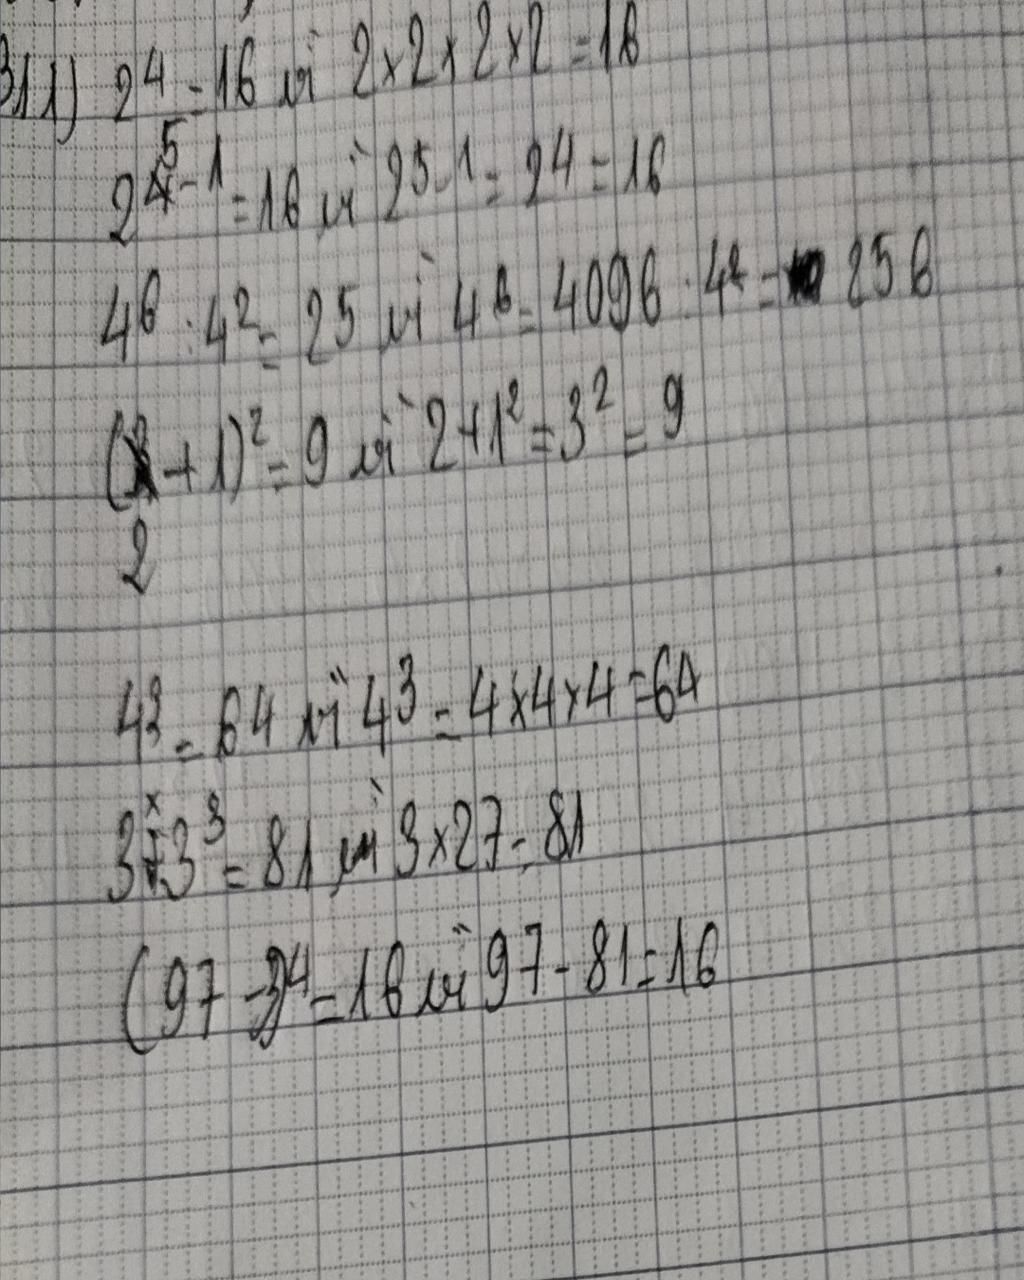 311) 2⁴ = 16 vì 2 × 2 × 2 × 2 = 16
2⁵⁻¹ = 16 vì 2⁵⁻¹ = 2⁴ = 16
4⁶ : 4² = 25 vì 4⁶ = 4096 : 4² = 256
(2 + 1)² = 9 vì 2 + 1² = 3² = 9
4³ = 64 vì 4³ = 4 × 4 × 4 = 64
3 × 3³ = 81 vì 3 × 27 = 81
(97 - 3)⁴ = 16 vì 97 - 81 = 16